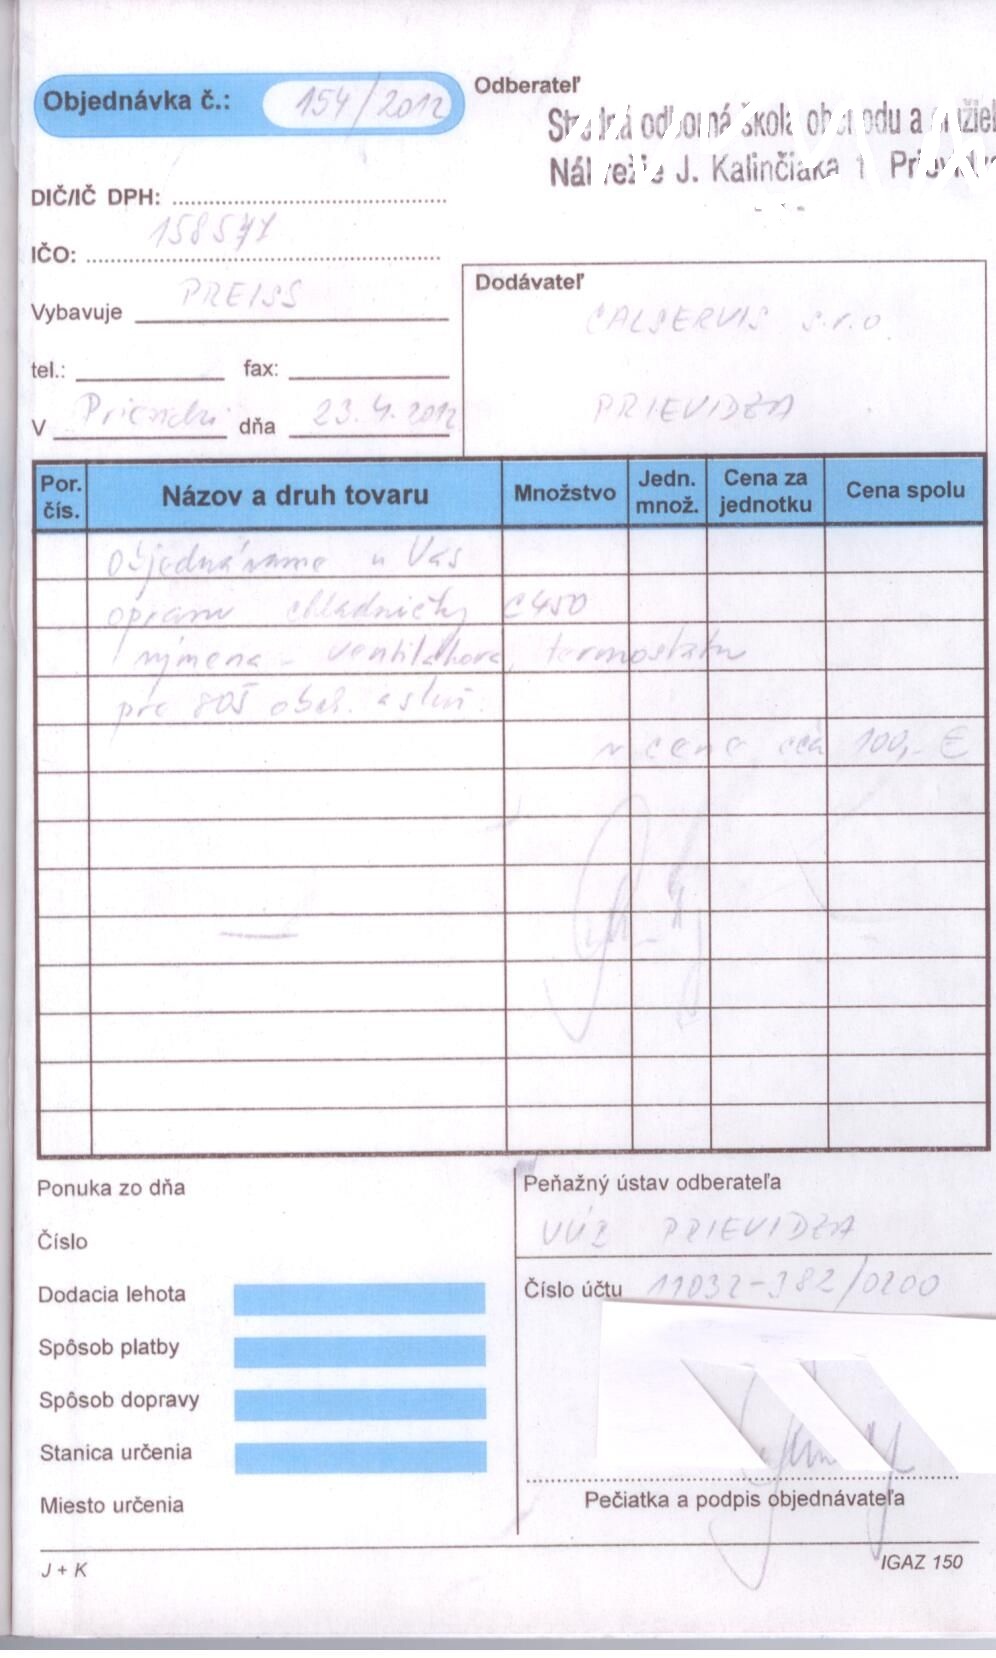 Objednávka č.: 154/2012
Odberateľ
Stredná odborná škola obchodu a služieb
Nábrežie J. Kalinčiaka 1, Prievidza
DIČ/IČ DPH:
IČO: 158571
Vybavuje PREISS
tel.: fax:
V Prievidzi dňa 23.4.2012
Dodávateľ
CALSERVIS s.r.o
PRIEVIDZA
Por. čís. Názov a druh tovaru Množstvo Jedn. množ. Cena za jednotku Cena spolu
Objednávame u Vás
opravu chladničky C450
výmena - ventilátora, termostatu
pre SOŠ obch. a služ.
v cene cca 100,- €
Ponuka zo dňa
Číslo
Dodacia lehota
Spôsob platby
Spôsob dopravy
Stanica určenia
Miesto určenia
Peňažný ústav odberateľa
VÚB PRIEVIDZA
Číslo účtu 11032-382/0200
Pečiatka a podpis objednávateľa
J + K
IGAZ 150